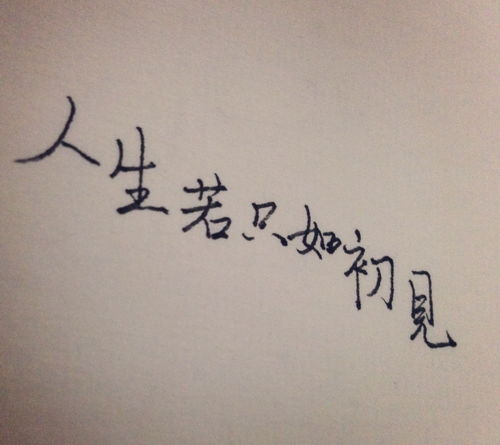 人生若只如初見